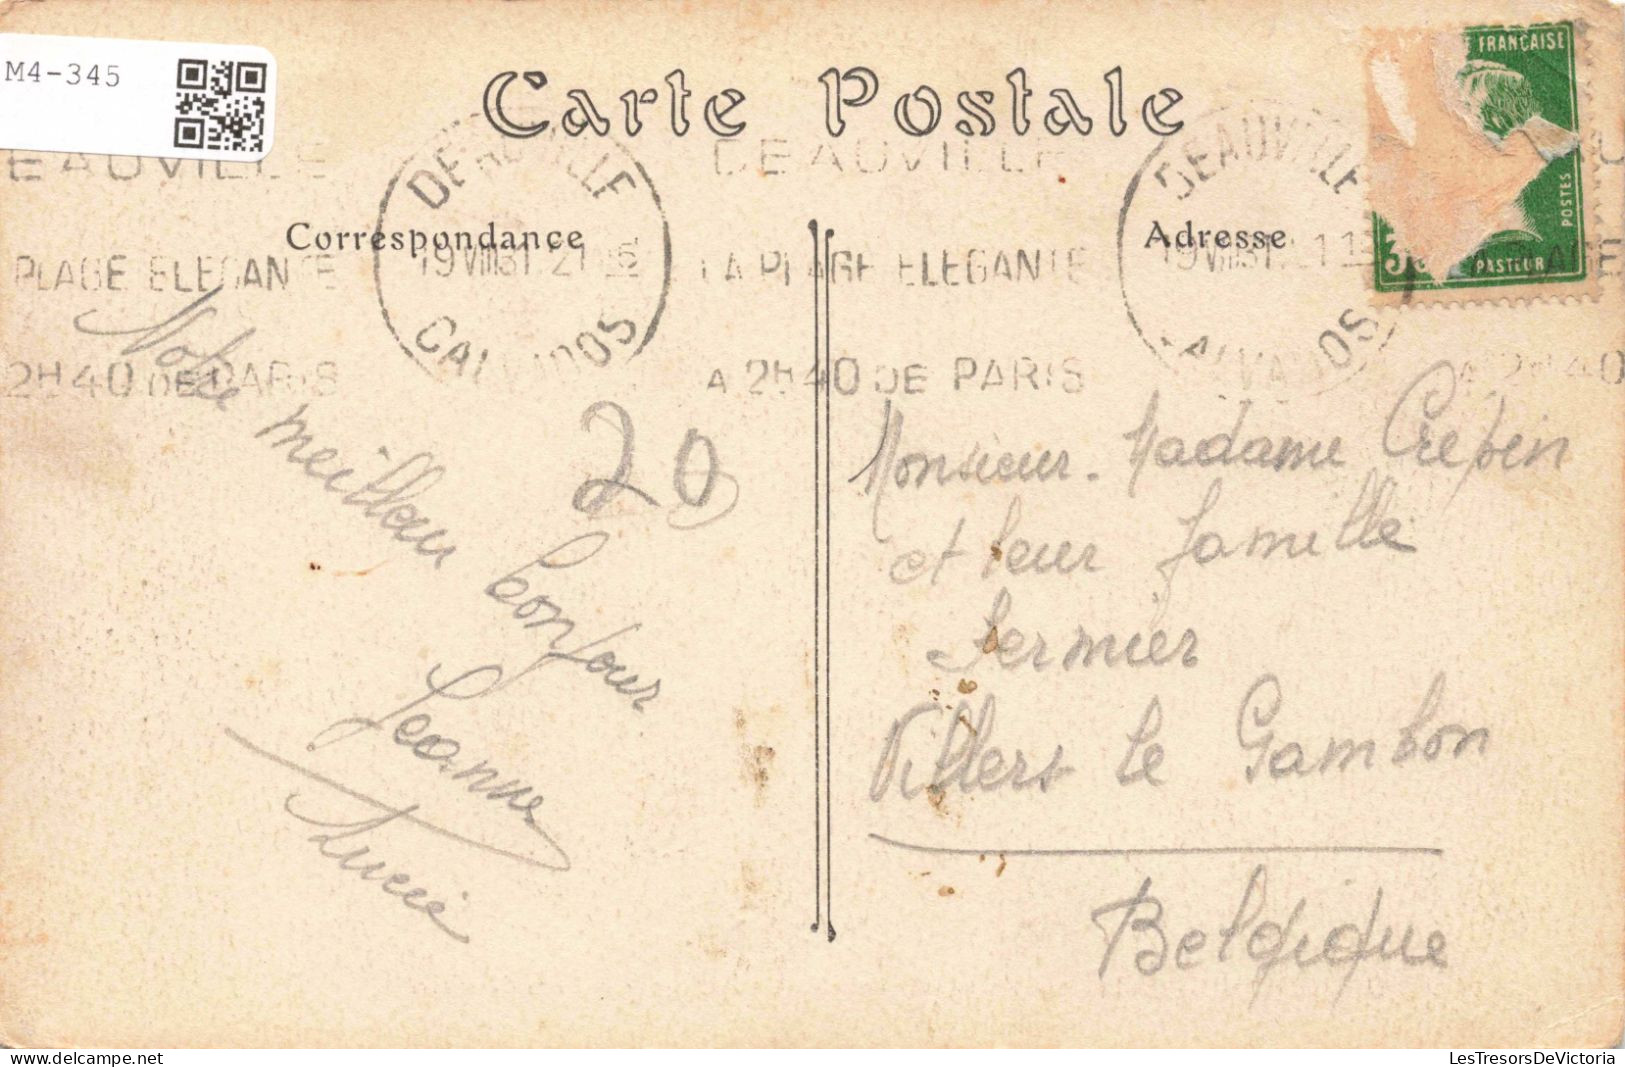 M4-345
Carte Postale
DEAUVILLE
DEAUVILLE
DEAUVILLE
EAUVILLE
Correspondance
Adresse
FRANÇAISE
POSTES
PASTEUR
PLAGE ELEGANTE
19 VIII 31. 21
LA PLAGE ELEGANTE
CALVADOS
CALVADOS
2H40 DE PARIS
A 2H40 DE PARIS
Notre meilleur bonjour
Jeanne
Lucie
20
Monsieur. Madame Crepin
et leur famille
fermier
Villers le Gambon
Belgique
LesTresorsDeVictoria